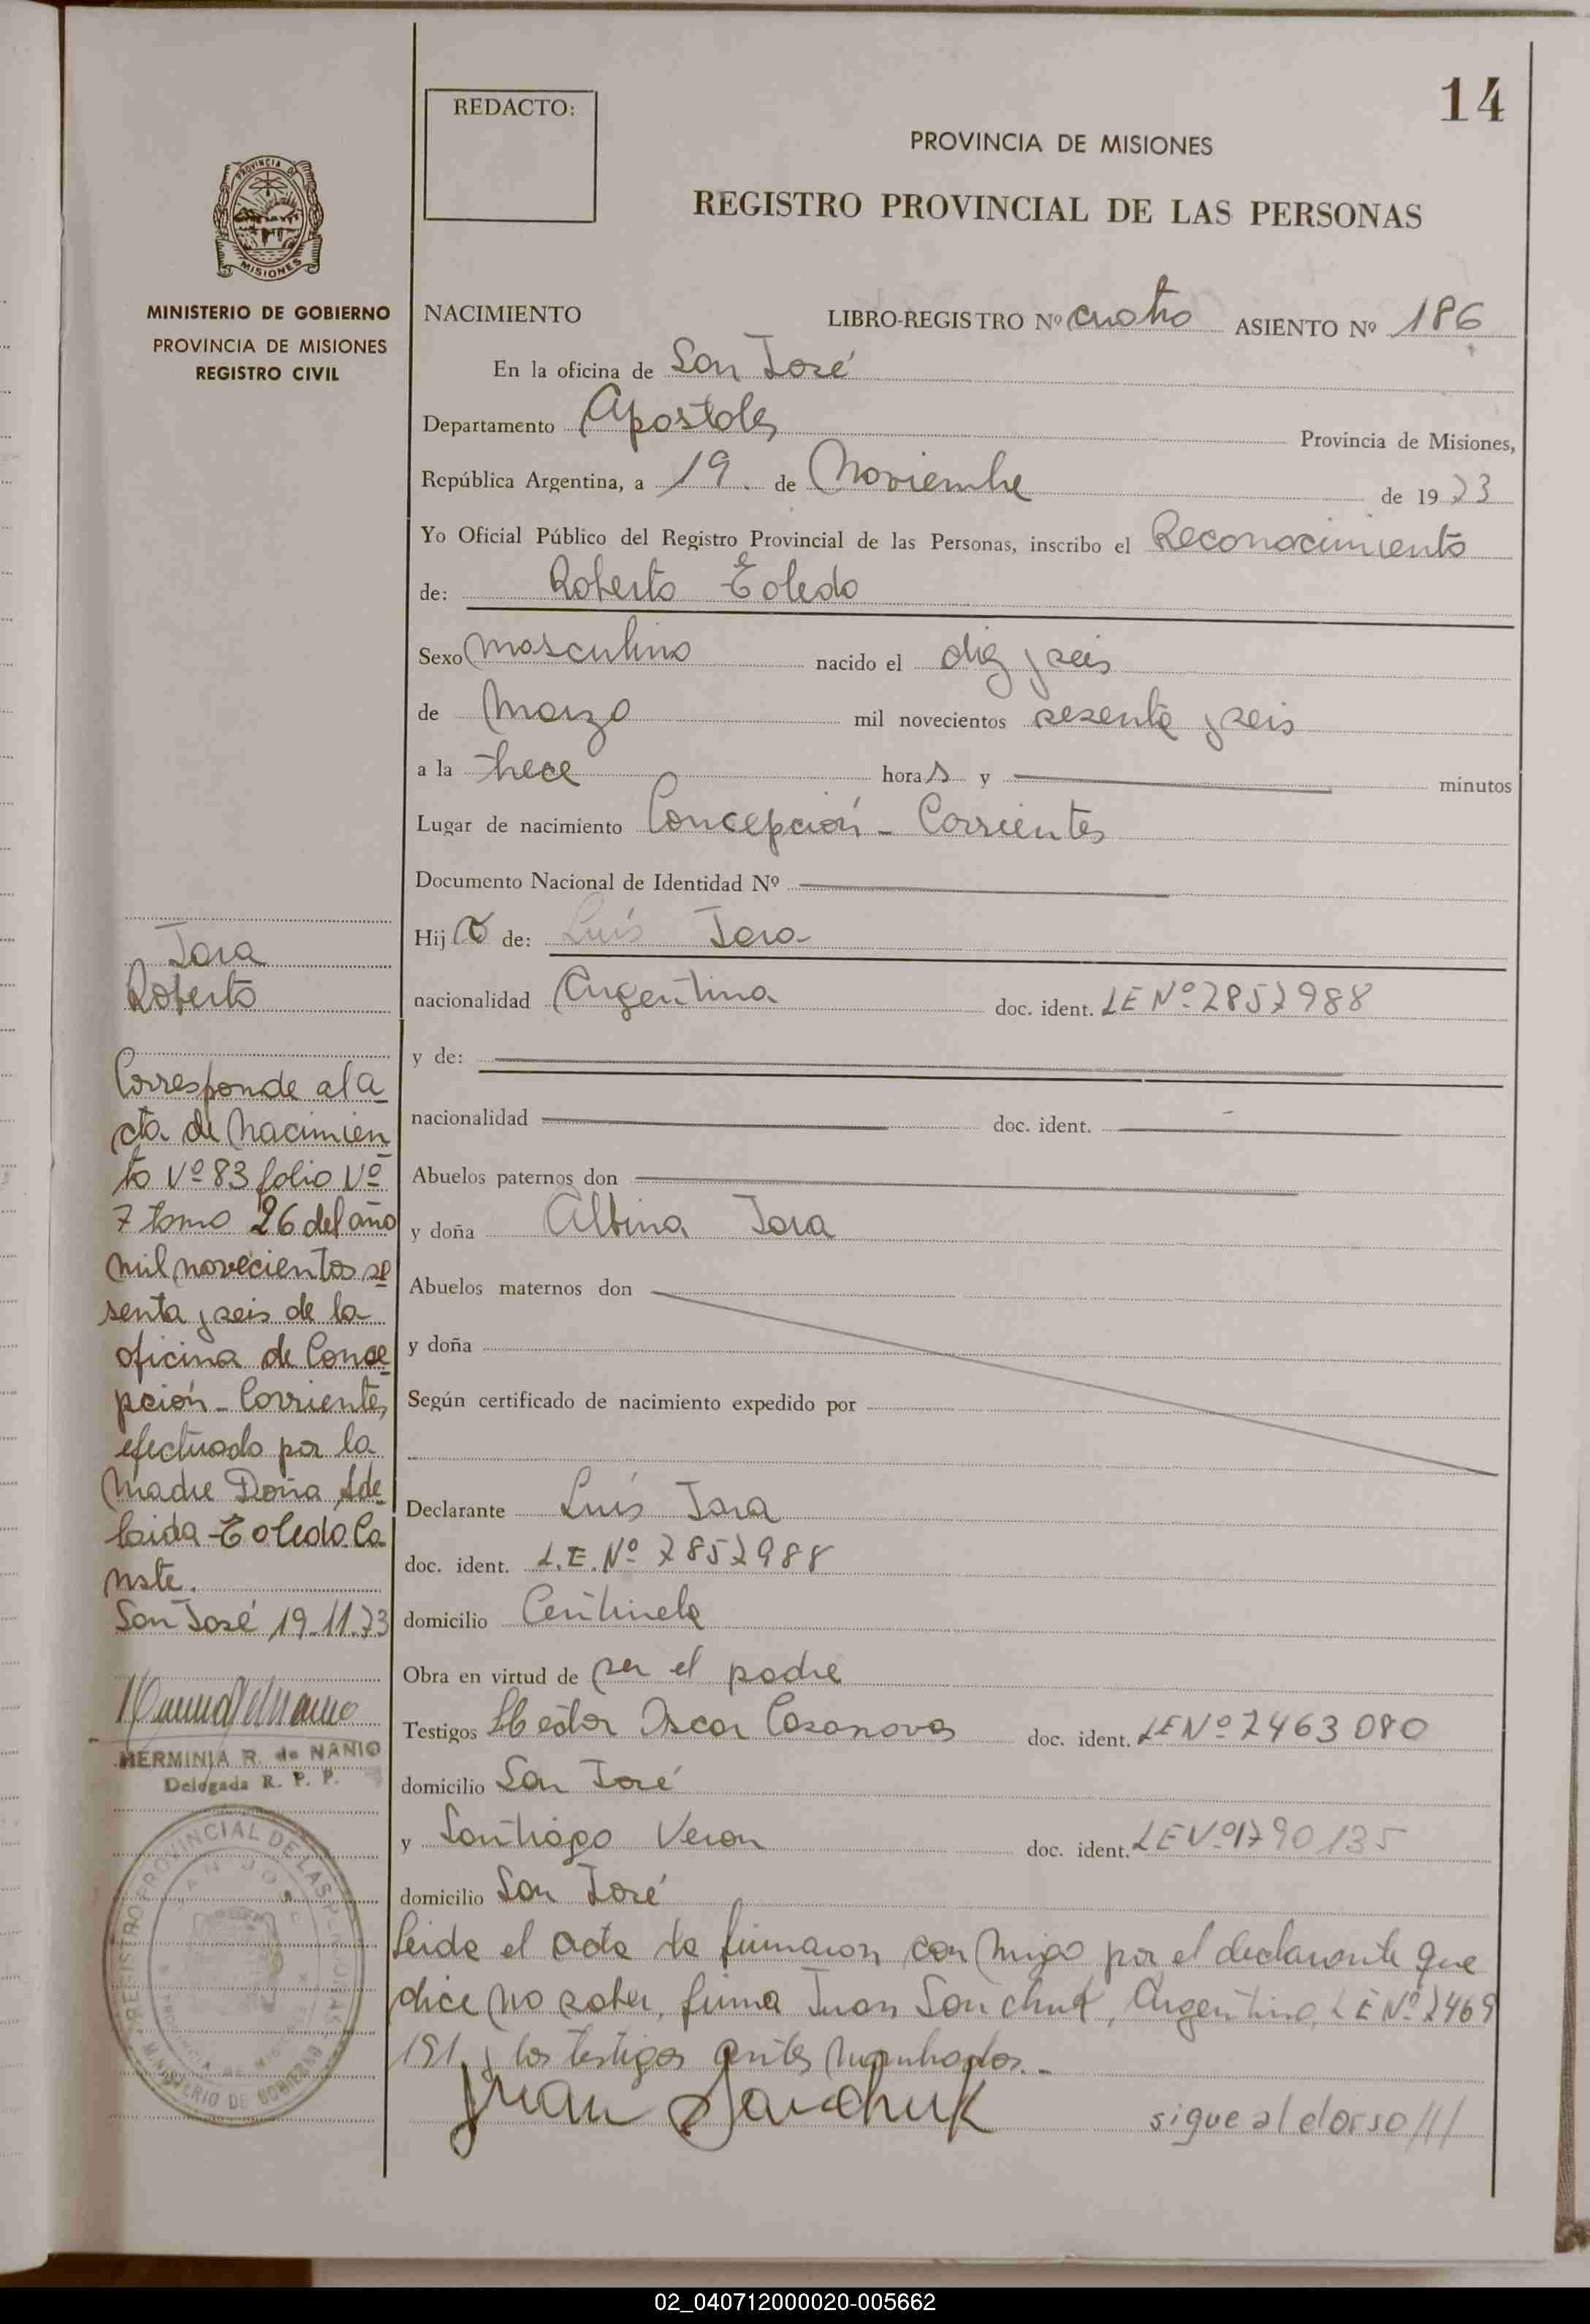 14
REDACTO:
PROVINCIA DE MISIONES
REGISTRO PROVINCIAL DE LAS PERSONAS
PROVINCIA DE
MISIONES
MINISTERIO DE GOBIERNO
PROVINCIA DE MISIONES
REGISTRO CIVIL
NACIMIENTO LIBRO-REGISTRO Nº cuatro ASIENTO Nº 186
En la oficina de San José
Departamento Apostoles Provincia de Misiones,
República Argentina, a 19 de Noviembre de 1973
Yo Oficial Público del Registro Provincial de las Personas, inscribo el Reconocimiento
de: Roberto Toledo
Sexo masculino nacido el diez y seis
de Marzo mil novecientos sesenta y seis
a la trece horas y minutos
Lugar de nacimiento Concepción - Corrientes
Documento Nacional de Identidad Nº
Hijo de: Luis Jara
nacionalidad Argentina doc. ident. LE Nº 7857988
y de:
nacionalidad doc. ident.
Abuelos paternos don
y doña Albina Jara
Abuelos maternos don
y doña
Según certificado de nacimiento expedido por
Declarante Luis Jara
doc. ident. L.E. Nº 7857988
domicilio Centinela
Obra en virtud de ser el padre
Testigos Héctor Oscar Casanova doc. ident. LE Nº 7463080
domicilio San José
y Santiago Veron doc. ident. LE Nº 1790135
domicilio San José
Leida el acta la firmaron conmigo por el declarante que
dice no saber, firma Juan Sanchuk, Argentino, LE Nº 7469
191, y los testigos antes nombrados.-
Juan Sanchuk
sigue al dorso///
Jara
Roberto
Corresponde al a
cta de Nacimien
to Nº 83 folio Nº
7 tomo 26 del año
mil novecientos se
senta y seis de la
oficina de Conce
pción - Corrientes
efectuado por la
Madre Doña Ade
laida Toledo. Co
nste.
San José 19-11-73
HERMINIA R. de NANIO
Delegada R. P. P.
REGISTRO PROVINCIAL DE LAS PERSONAS
SAN JOSE
PROVINCIA DE MISIONES
MINISTERIO DE GOBIERNO
02_040712000020-005662